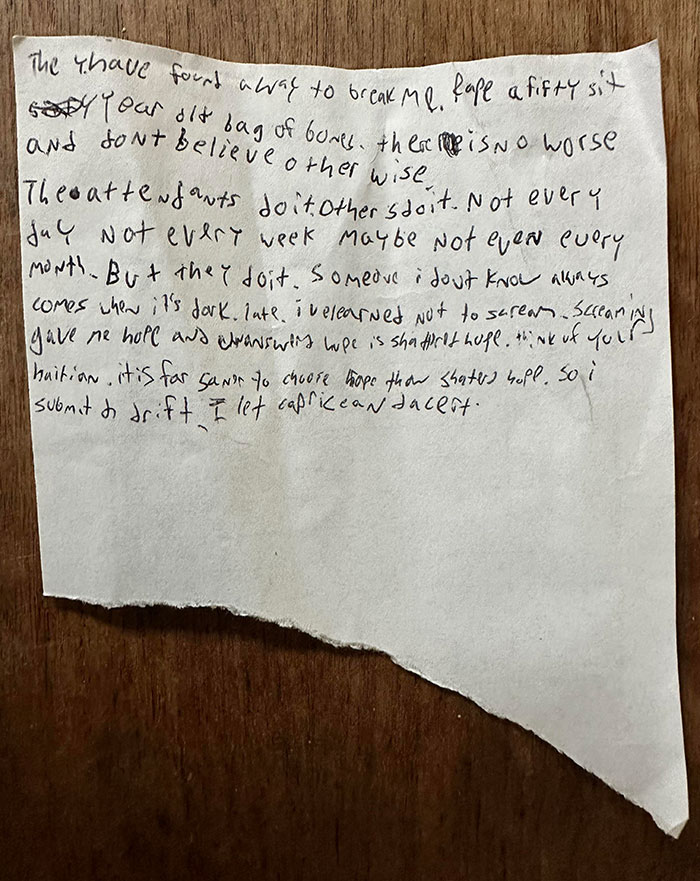 The y have found away to break Me. Rape a fifty sit
year old bag of bones. there is no worse
and dont believe other wise.
The attendants do it. Others do it. Not every
day Not every week Maybe Not even every
Month. But they do it. Someone i dont know always
comes when it's dark. late. ivelearned not to scream. Screaming
gave me hope and unanswered hope is shattered hope. think of your
haitian. it is far saner to choose than shatered hope. So i
submit to drift. I let caprice and